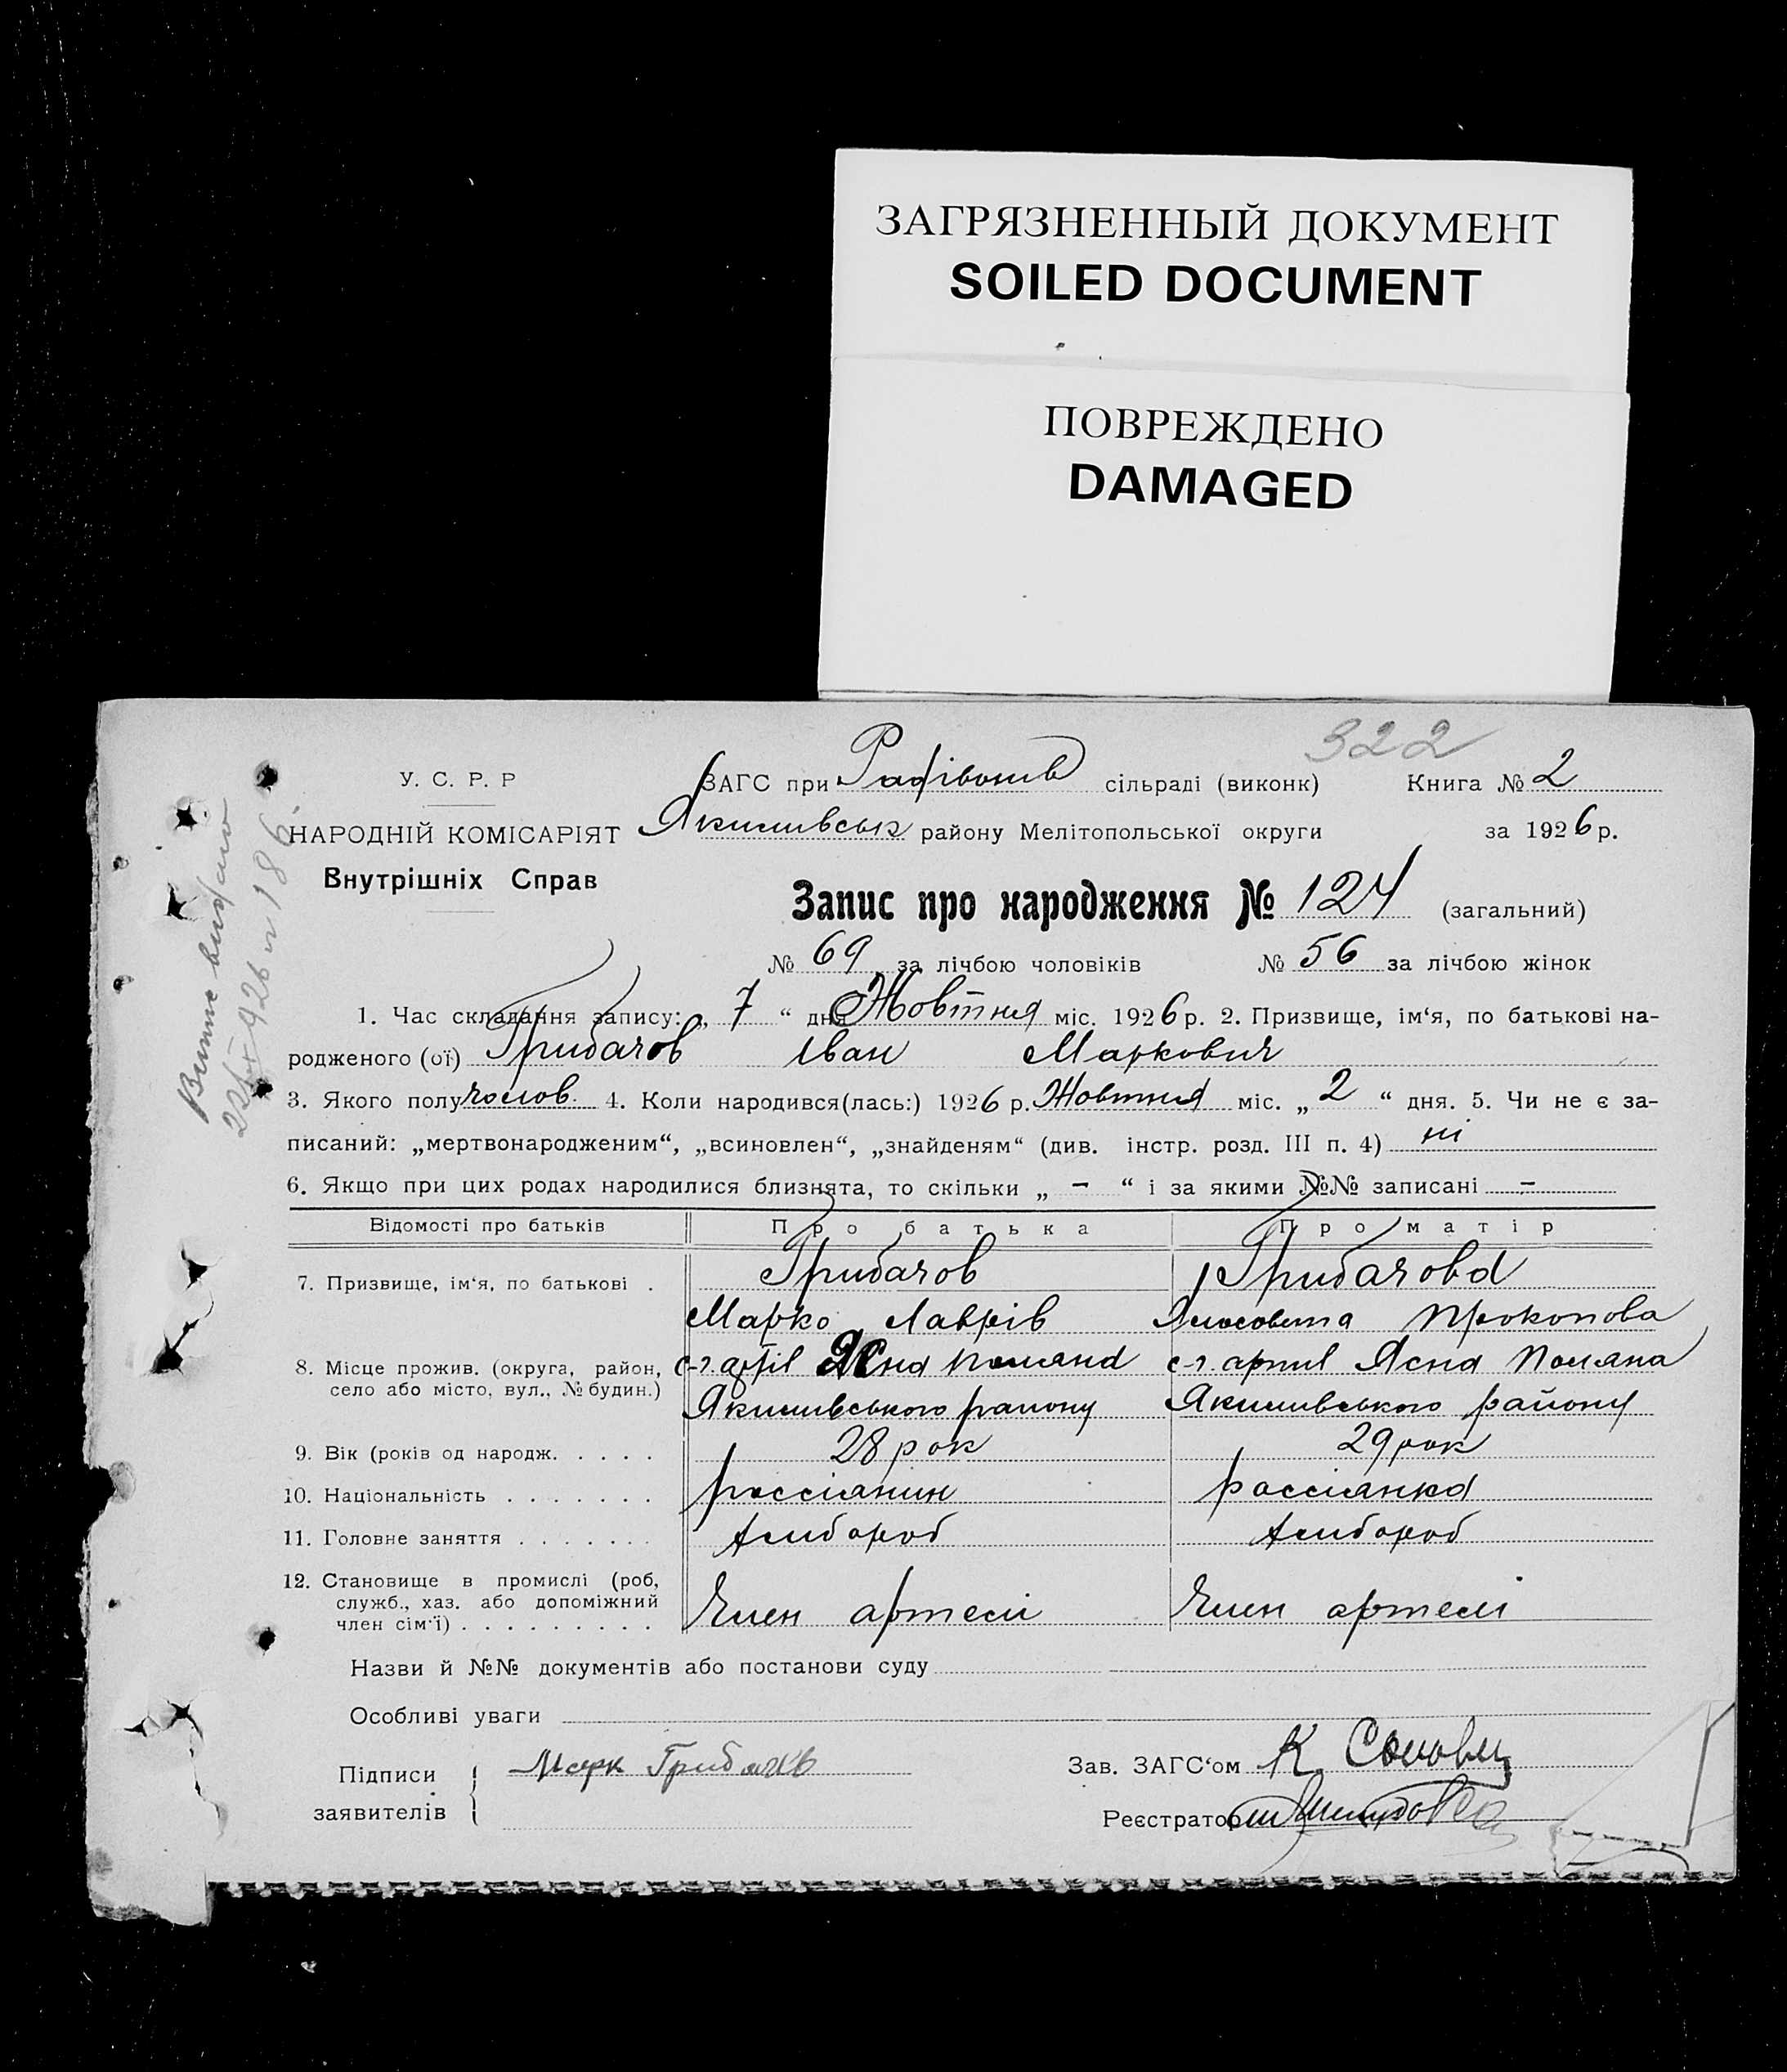 ЗАГРЯЗНЕННЫЙ ДОКУМЕНТ
SOILED DOCUMENT
ПОВРЕЖДЕНО
DAMAGED
322
У. С. Р. Р
ЗАГС при сільраді (виконк) Книга № 2
НАРОДНІЙ КОМІСАРІЯТ
Якимівськ району Мелітопольської округи за 1926 р.
Внутрішніх Справ
Запис про народження № 124 (загальний)
№ 69 за лічбою чоловіків № 56 за лічбою жінок
1. Час складання запису: „ 7 “ дня Жовтня міс. 1926 р. 2. Призвище, ім‘я, по батькові на-
родженого (ої) Грибачов Іван Маркович
3. Якого полу чолов. 4. Коли народився(лась:) 1926 р. Жовтня міс. „ 2 “ дня. 5. Чи не є за-
писаний: „мертвонародженим“, „всиновлен“, „знайденям“ (див. інстр. розд. III п. 4) ні
6. Якщо при цих родах народилися близнята, то скільки „ – “ і за якими №№ записані –
Відомості про батьків Про батька Про матір
7. Призвище, ім‘я, по батькові . Грибачов Грибачова
Марко Лаврів Прокопова
8. Місце прожив. (округа, район, с-г. артіл Ясна поляна с-г. артіл Ясна Поляна
село або місто, вул., № будин.)
Якимівського району Якимівського району
9. Вік (років од народж. . . . . 28 рок 29 рок
10. Національність . . . . . . . россіянин россіянка
11. Головне заняття . . . . . . . хлибороб хлибороб
12. Становище в промислі (роб,
служб., хаз. або допоміжний
член сім‘ї) . . . . . . . . . Член артелі Член артелі
Назви й №№ документів або постанови суду
Особливі уваги
Підписи
заявителів
Марк Грибачов
Зав. ЗАГС‘ом К.
Реєстратор
Витяг видано